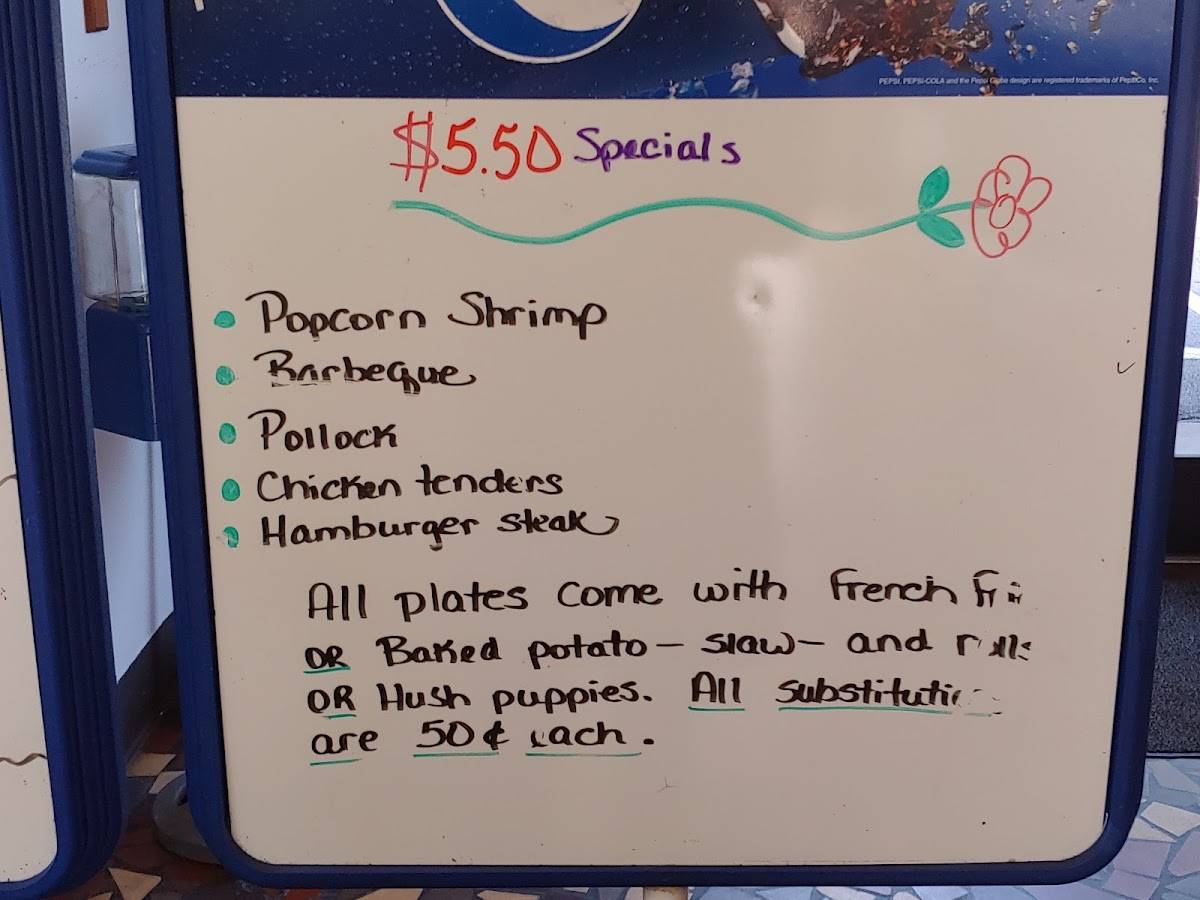 PEPSI, PEPSI-COLA and the Pepsi Globe design are registered trademarks of PepsiCo, Inc.
$5.50 Specials
• Popcorn Shrimp
• Barbeque
• Pollock
• Chicken tenders
• Hamburger steak
All plates come with French
OR Baked potato - slaw - and
OR Hush puppies. All
are 50¢ each.